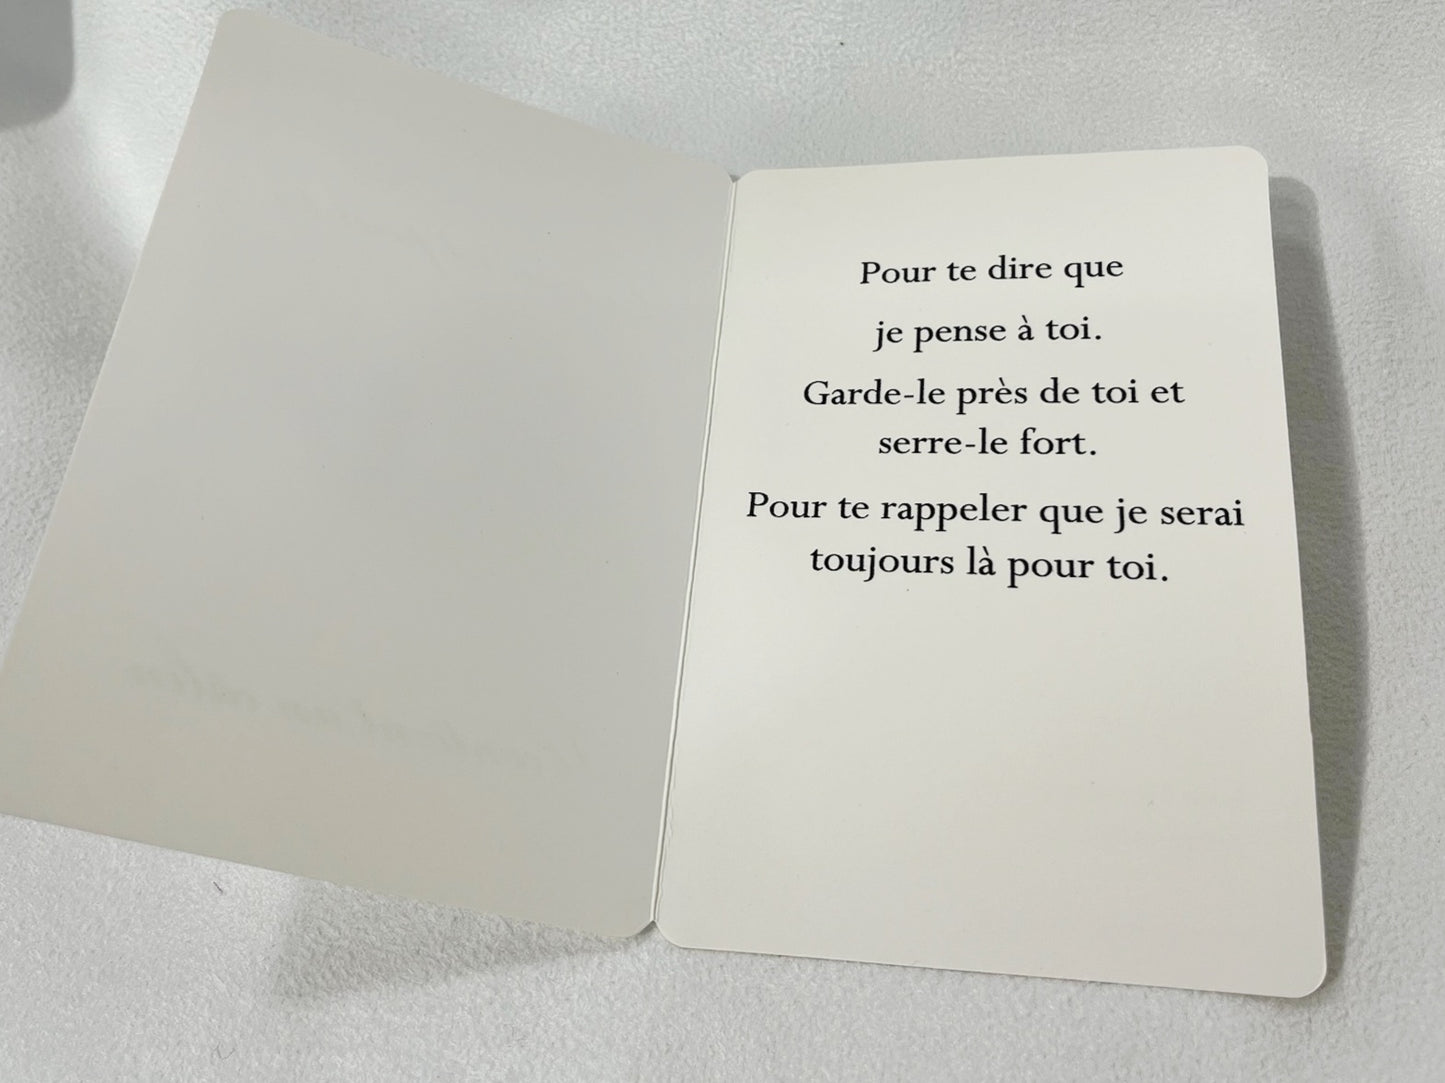 Pour te dire que
je pense à toi.
Garde-le près de toi et
serre-le fort.
Pour te rappeler que je serai
toujours là pour toi.